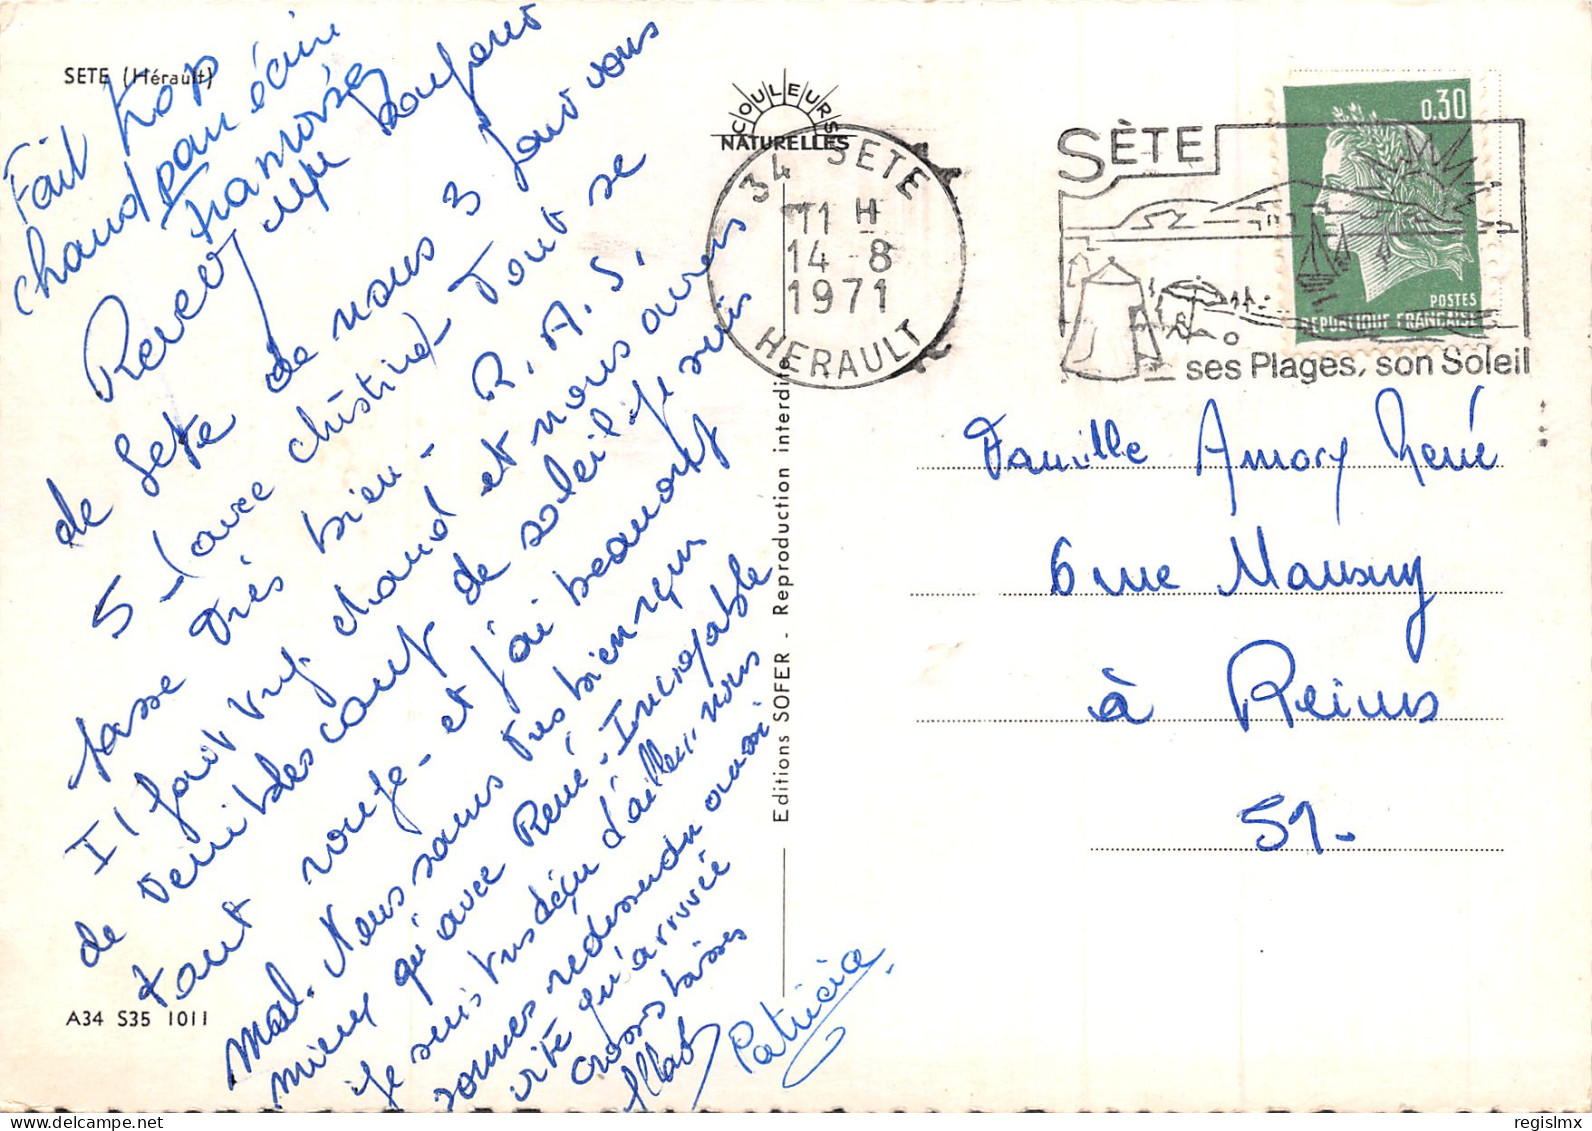 SETE (Hérault)
Fait trop
chaud pour écrire
Françoise
Recevez une toujours
de Sete de nous 3 pour vous
5 - (avec christine) - Tout se
passe très bien - R. A. S.
Il fait très chaud et nous avons
de véritables cout de soleil je suis
tout rouge - et j'ai beaucoup
mal. Nous sommes très bien reçus
mieux qu'avec René - Incroyable
je suis très déçu d'ailleurs nous
sommes redescendu aussi
vite qu'arrivée
Grosses baises
Patricia
COULEURS
NATURELLES
34 SETE
11 H
14-8
1971
HERAULT
SÈTE
ses Plages, son Soleil
0,30
POSTES
REPUBLIQUE FRANÇAISE
Editions SOFER - Reproduction interdite
Famille Amory René
6 rue Mausuy
à Reims
51.
A34 S35 1011
regislmx